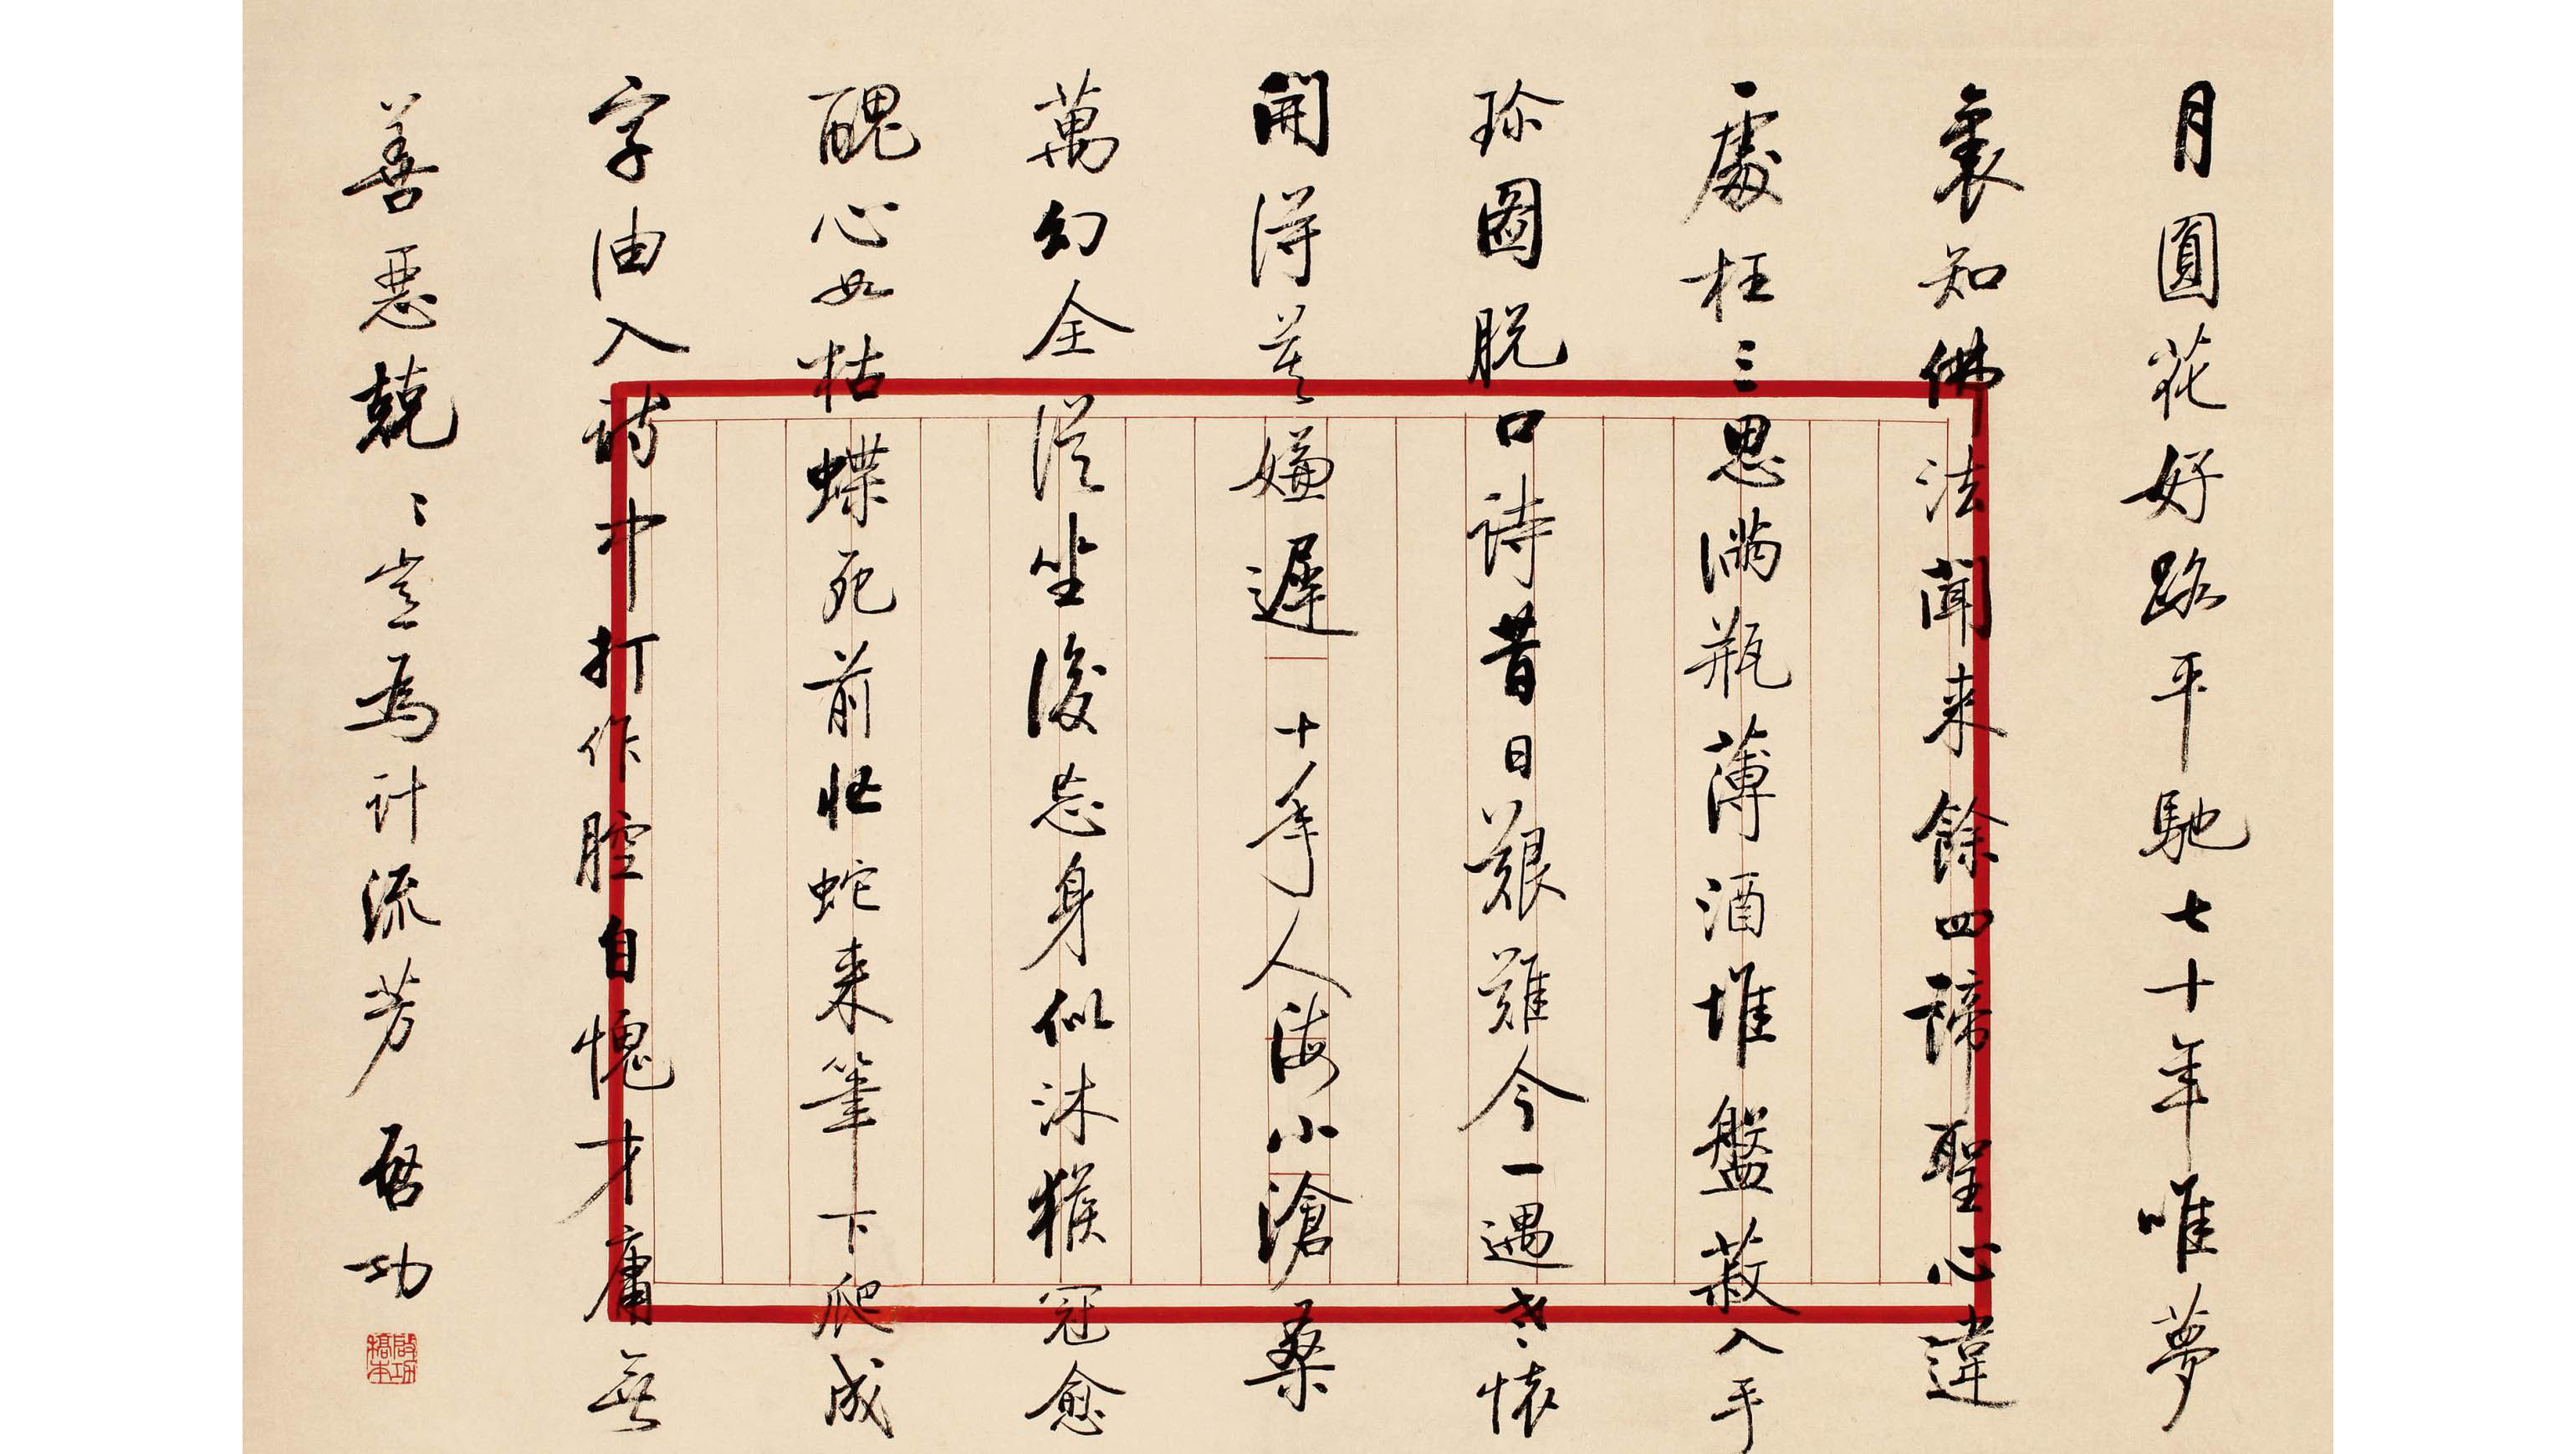 月圓花好路平馳七十年唯夢
裏知佛法聞来餘四諦聖心違
一處枉三思滿瓶薄酒堆盤菽入手
珎圖脫口詩昔日艱難今一遇老懷
開得莫嫌遲 十年人海小滄桑
萬幻全從坐後忘身似沐猴冠愈
醜心如枯蝶死前忙蛇来筆下爬成
字油入詩中打作腔自愧才庸無
善惡兢〻豈為計流芳 啓功
啟功